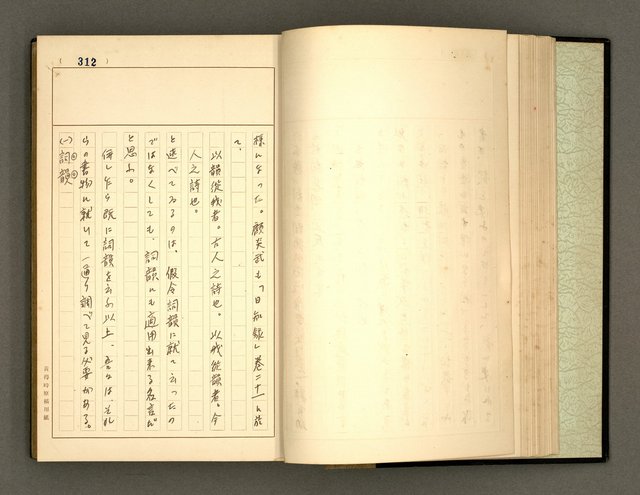 312
様になった。顧炎武も「日知録」巻二十一に於
て、
以韻従我者。古人之詩也。以我従韻者。今
人之詩也。
と述べてゐるのは、假令詞韻に就て云つたの
ではなくしても、詞韻にも適用出来る名言だ
と思ふ。
併し乍ら既に詞韻を云ふ以上、吾々は、それ
らの書物に就いて一通り調べて見る必要がある。
(一)詞韻
黄得時原稿用紙